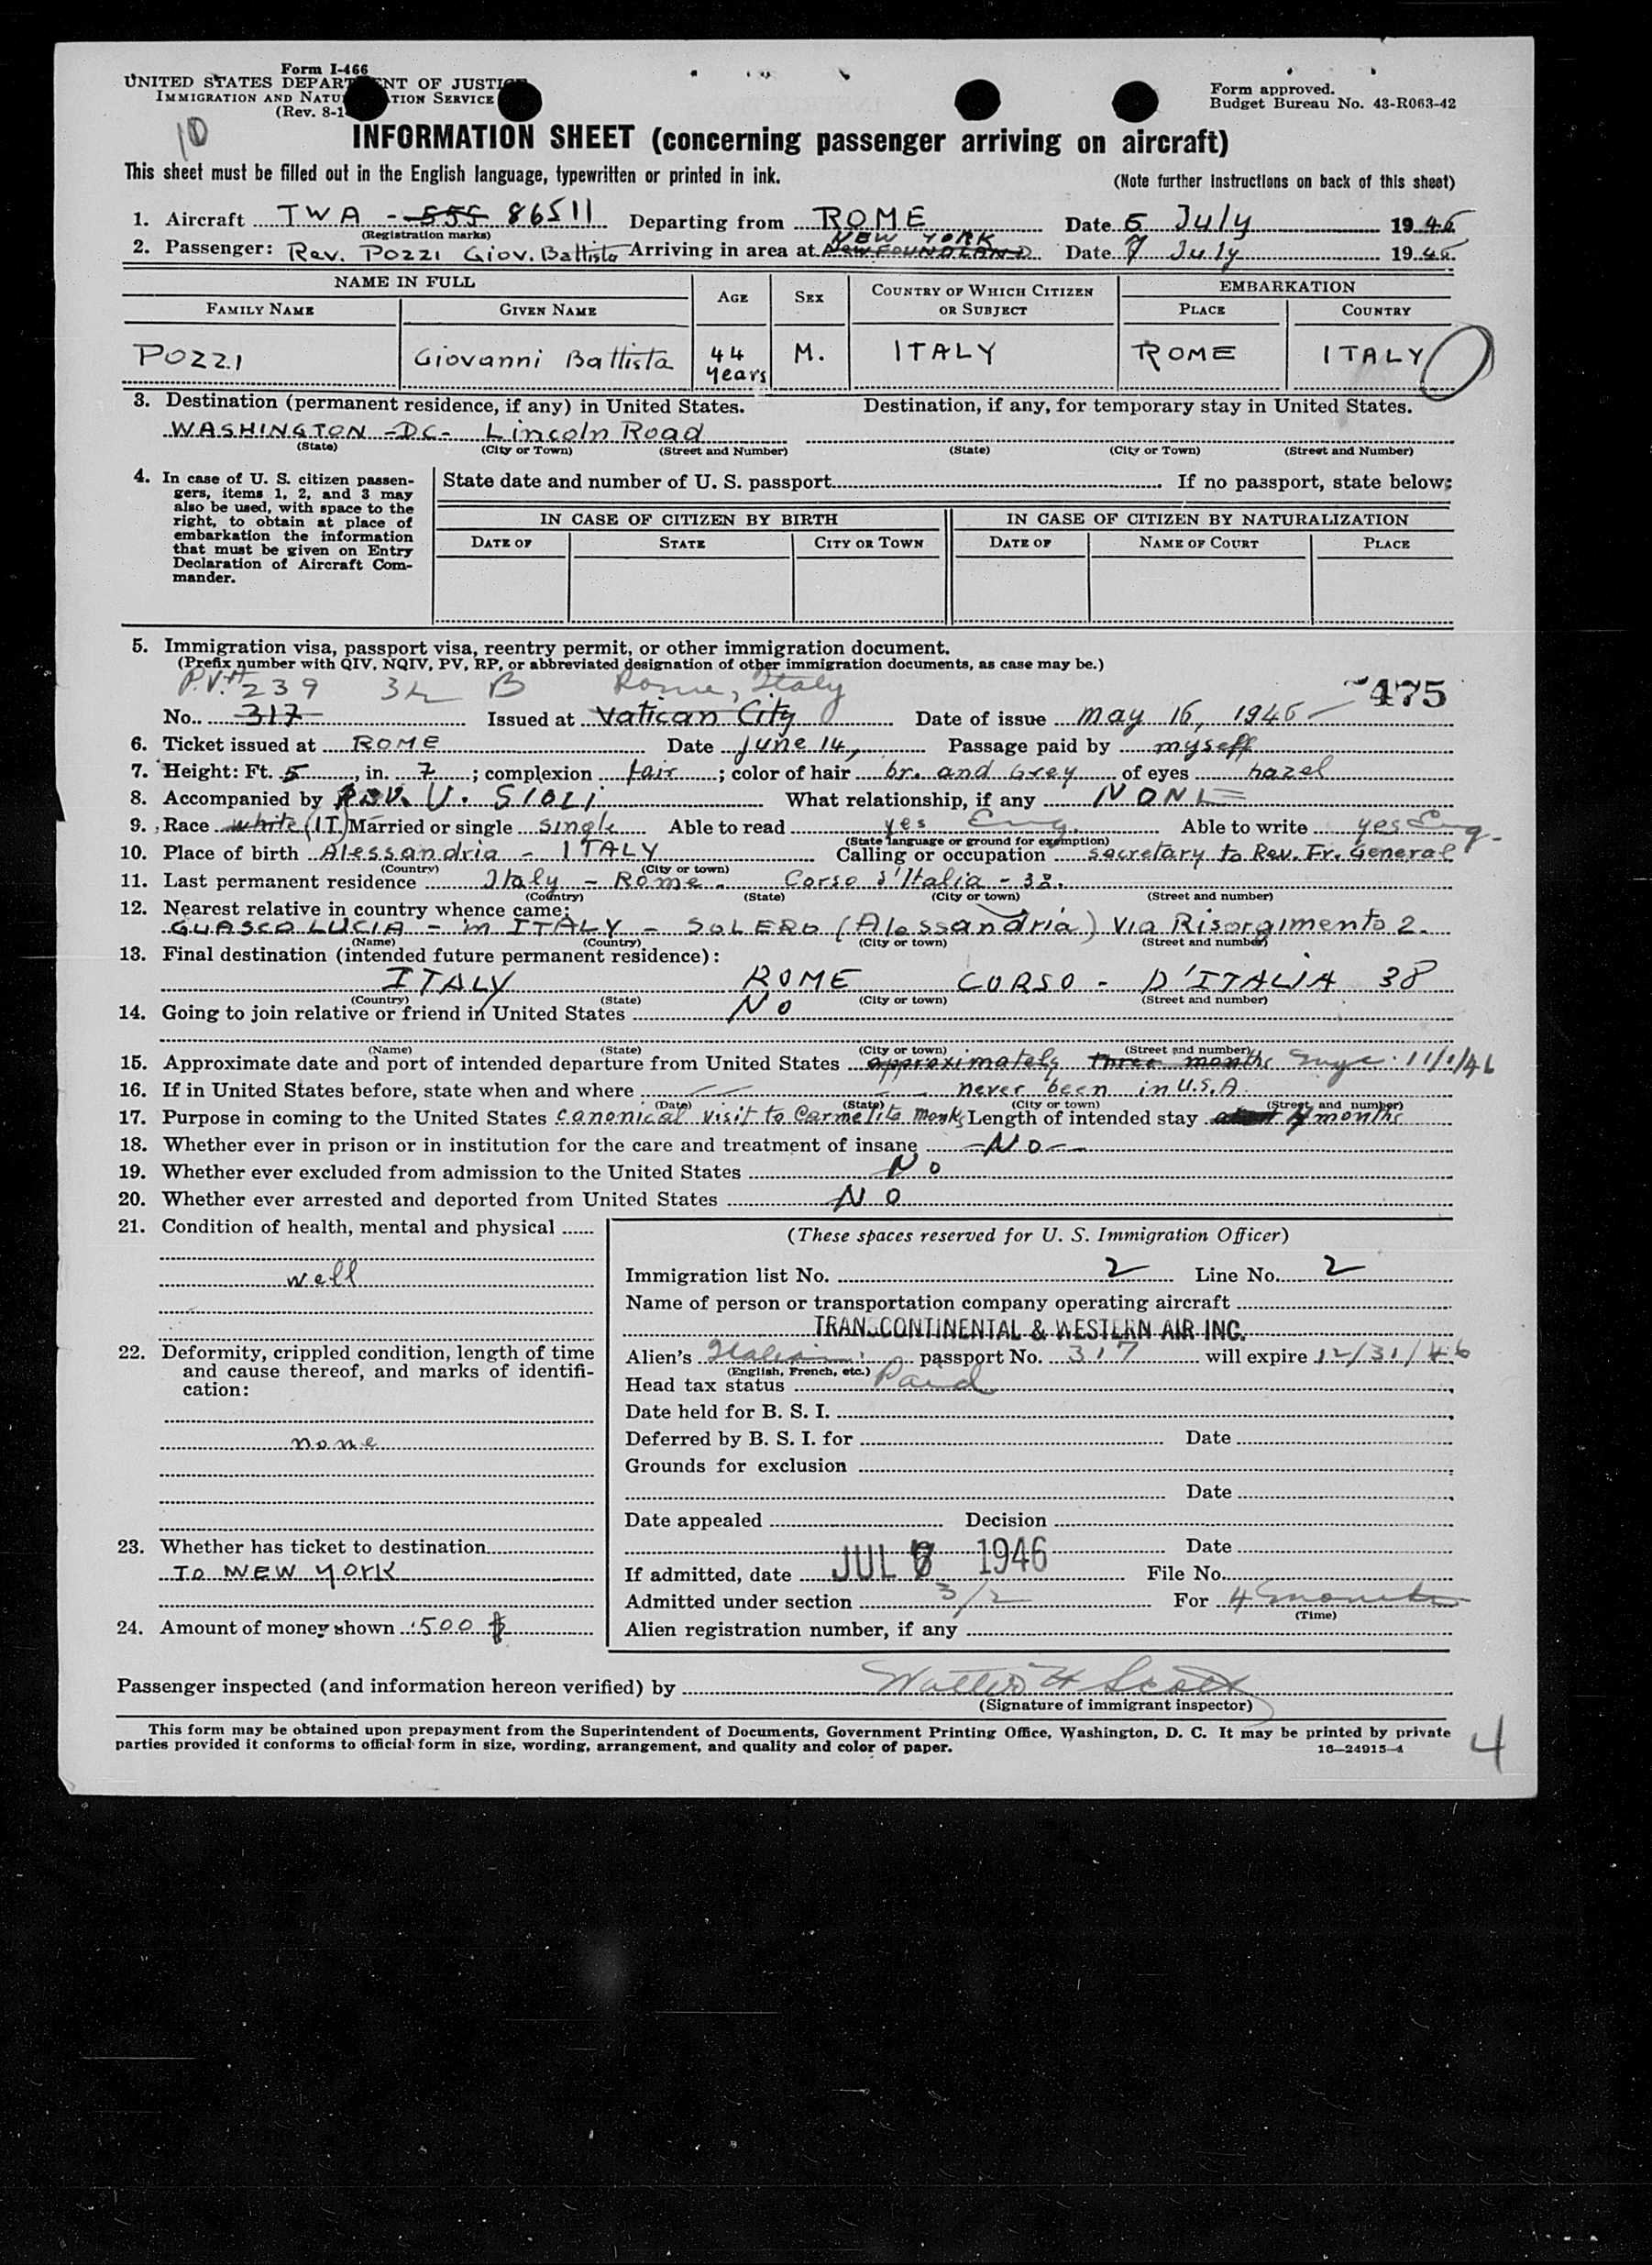 Form I-466
UNITED STATES DEPARTMENT OF JUSTICE
IMMIGRATION AND NATURALIZATION SERVICE
(Rev. 8-1
Form approved.
Budget Bureau No. 43-R063-42
10
INFORMATION SHEET (concerning passenger arriving on aircraft)
This sheet must be filled out in the English language, typewritten or printed in ink.
(Note further instructions on back of this sheet)
1. Aircraft TWA - 555 86511 Departing from ROME Date 5 July 1946
(Registration marks)
NEW YORK
2. Passenger: Rev. Pozzi Giov. Battista Arriving in area at NEWFOUNDLAND Date 7 July 1946
NAME IN FULL AGE SEX COUNTRY OF WHICH CITIZEN OR SUBJECT EMBARKATION
FAMILY NAME GIVEN NAME PLACE COUNTRY
POZZI Giovanni Battista 44 years M. ITALY ROME ITALY
3. Destination (permanent residence, if any) in United States. Destination, if any, for temporary stay in United States.
WASHINGTON -DC- Lincoln Road
(State) (City or Town) (Street and Number) (State) (City or Town) (Street and Number)
4. In case of U. S. citizen passengers, items 1, 2, and 3 may also be used, with space to the right, to obtain at place of embarkation the information that must be given on Entry Declaration of Aircraft Commander.
State date and number of U. S. passport If no passport, state below:
IN CASE OF CITIZEN BY BIRTH IN CASE OF CITIZEN BY NATURALIZATION
DATE OF STATE CITY OR TOWN DATE OF NAME OF COURT PLACE
5. Immigration visa, passport visa, reentry permit, or other immigration document.
(Prefix number with QIV, NQIV, PV, RP, or abbreviated designation of other immigration documents, as case may be.)
P.V.# 239 32 B Rome, Italy 475
No. 317 Issued at Vatican City Date of issue may 16, 1946
6. Ticket issued at ROME Date June 14, Passage paid by myself
7. Height: Ft. 5, in. 7; complexion fair; color of hair br. and Grey of eyes hazel
8. Accompanied by Rev. U. SIOLI What relationship, if any NONE
9. Race white (IT) Married or single single Able to read yes Eng. Able to write yes Eng.
(State language or ground for exemption)
10. Place of birth Alessandria - ITALY Calling or occupation secretary to Rev. Fr. General
(Country) (City or town)
11. Last permanent residence Italy - Rome - Corso d'Italia - 38.
(Country) (State) (City or town) (Street and number)
12. Nearest relative in country whence came:
GUASCO LUCIA - in ITALY - SOLERO (Alessandria) Via Risorgimento 2.
(Name) (Country) (City or town) (Street and number)
13. Final destination (intended future permanent residence):
ITALY ROME CORSO - D'ITALIA 38
(Country) (State) (City or town) (Street and number)
14. Going to join relative or friend in United States No
(Name) (State) (City or town) (Street and number)
15. Approximate date and port of intended departure from United States approximately three months 11/1/46
16. If in United States before, state when and where never been in U.S.A.
(Date) (State) (City or town) (Street and number)
17. Purpose in coming to the United States canonical visit to Carmelite Monks Length of intended stay 4 months
18. Whether ever in prison or in institution for the care and treatment of insane - No -
19. Whether ever excluded from admission to the United States No
20. Whether ever arrested and deported from United States No
21. Condition of health, mental and physical
well
22. Deformity, crippled condition, length of time and cause thereof, and marks of identification:
none
23. Whether has ticket to destination
To NEW YORK
24. Amount of money shown 500 $
(These spaces reserved for U. S. Immigration Officer)
Immigration list No. 2 Line No. 2
Name of person or transportation company operating aircraft
TRANSCONTINENTAL & WESTERN AIR INC.
Alien's Italian passport No. 317 will expire 12/31/46
(English, French, etc.)
Head tax status Paid
Date held for B. S. I.
Deferred by B. S. I. for Date
Grounds for exclusion
Date
Date appealed Decision
Date
If admitted, date JUL 7 1946 File No.
Admitted under section 3/2 For 4 months
(Time)
Alien registration number, if any
Passenger inspected (and information hereon verified) by Walter H Scott
(Signature of immigrant inspector)
This form may be obtained upon prepayment from the Superintendent of Documents, Government Printing Office, Washington, D. C. It may be printed by private
parties provided it conforms to official form in size, wording, arrangement, and quality and color of paper.
16—24915-1
4